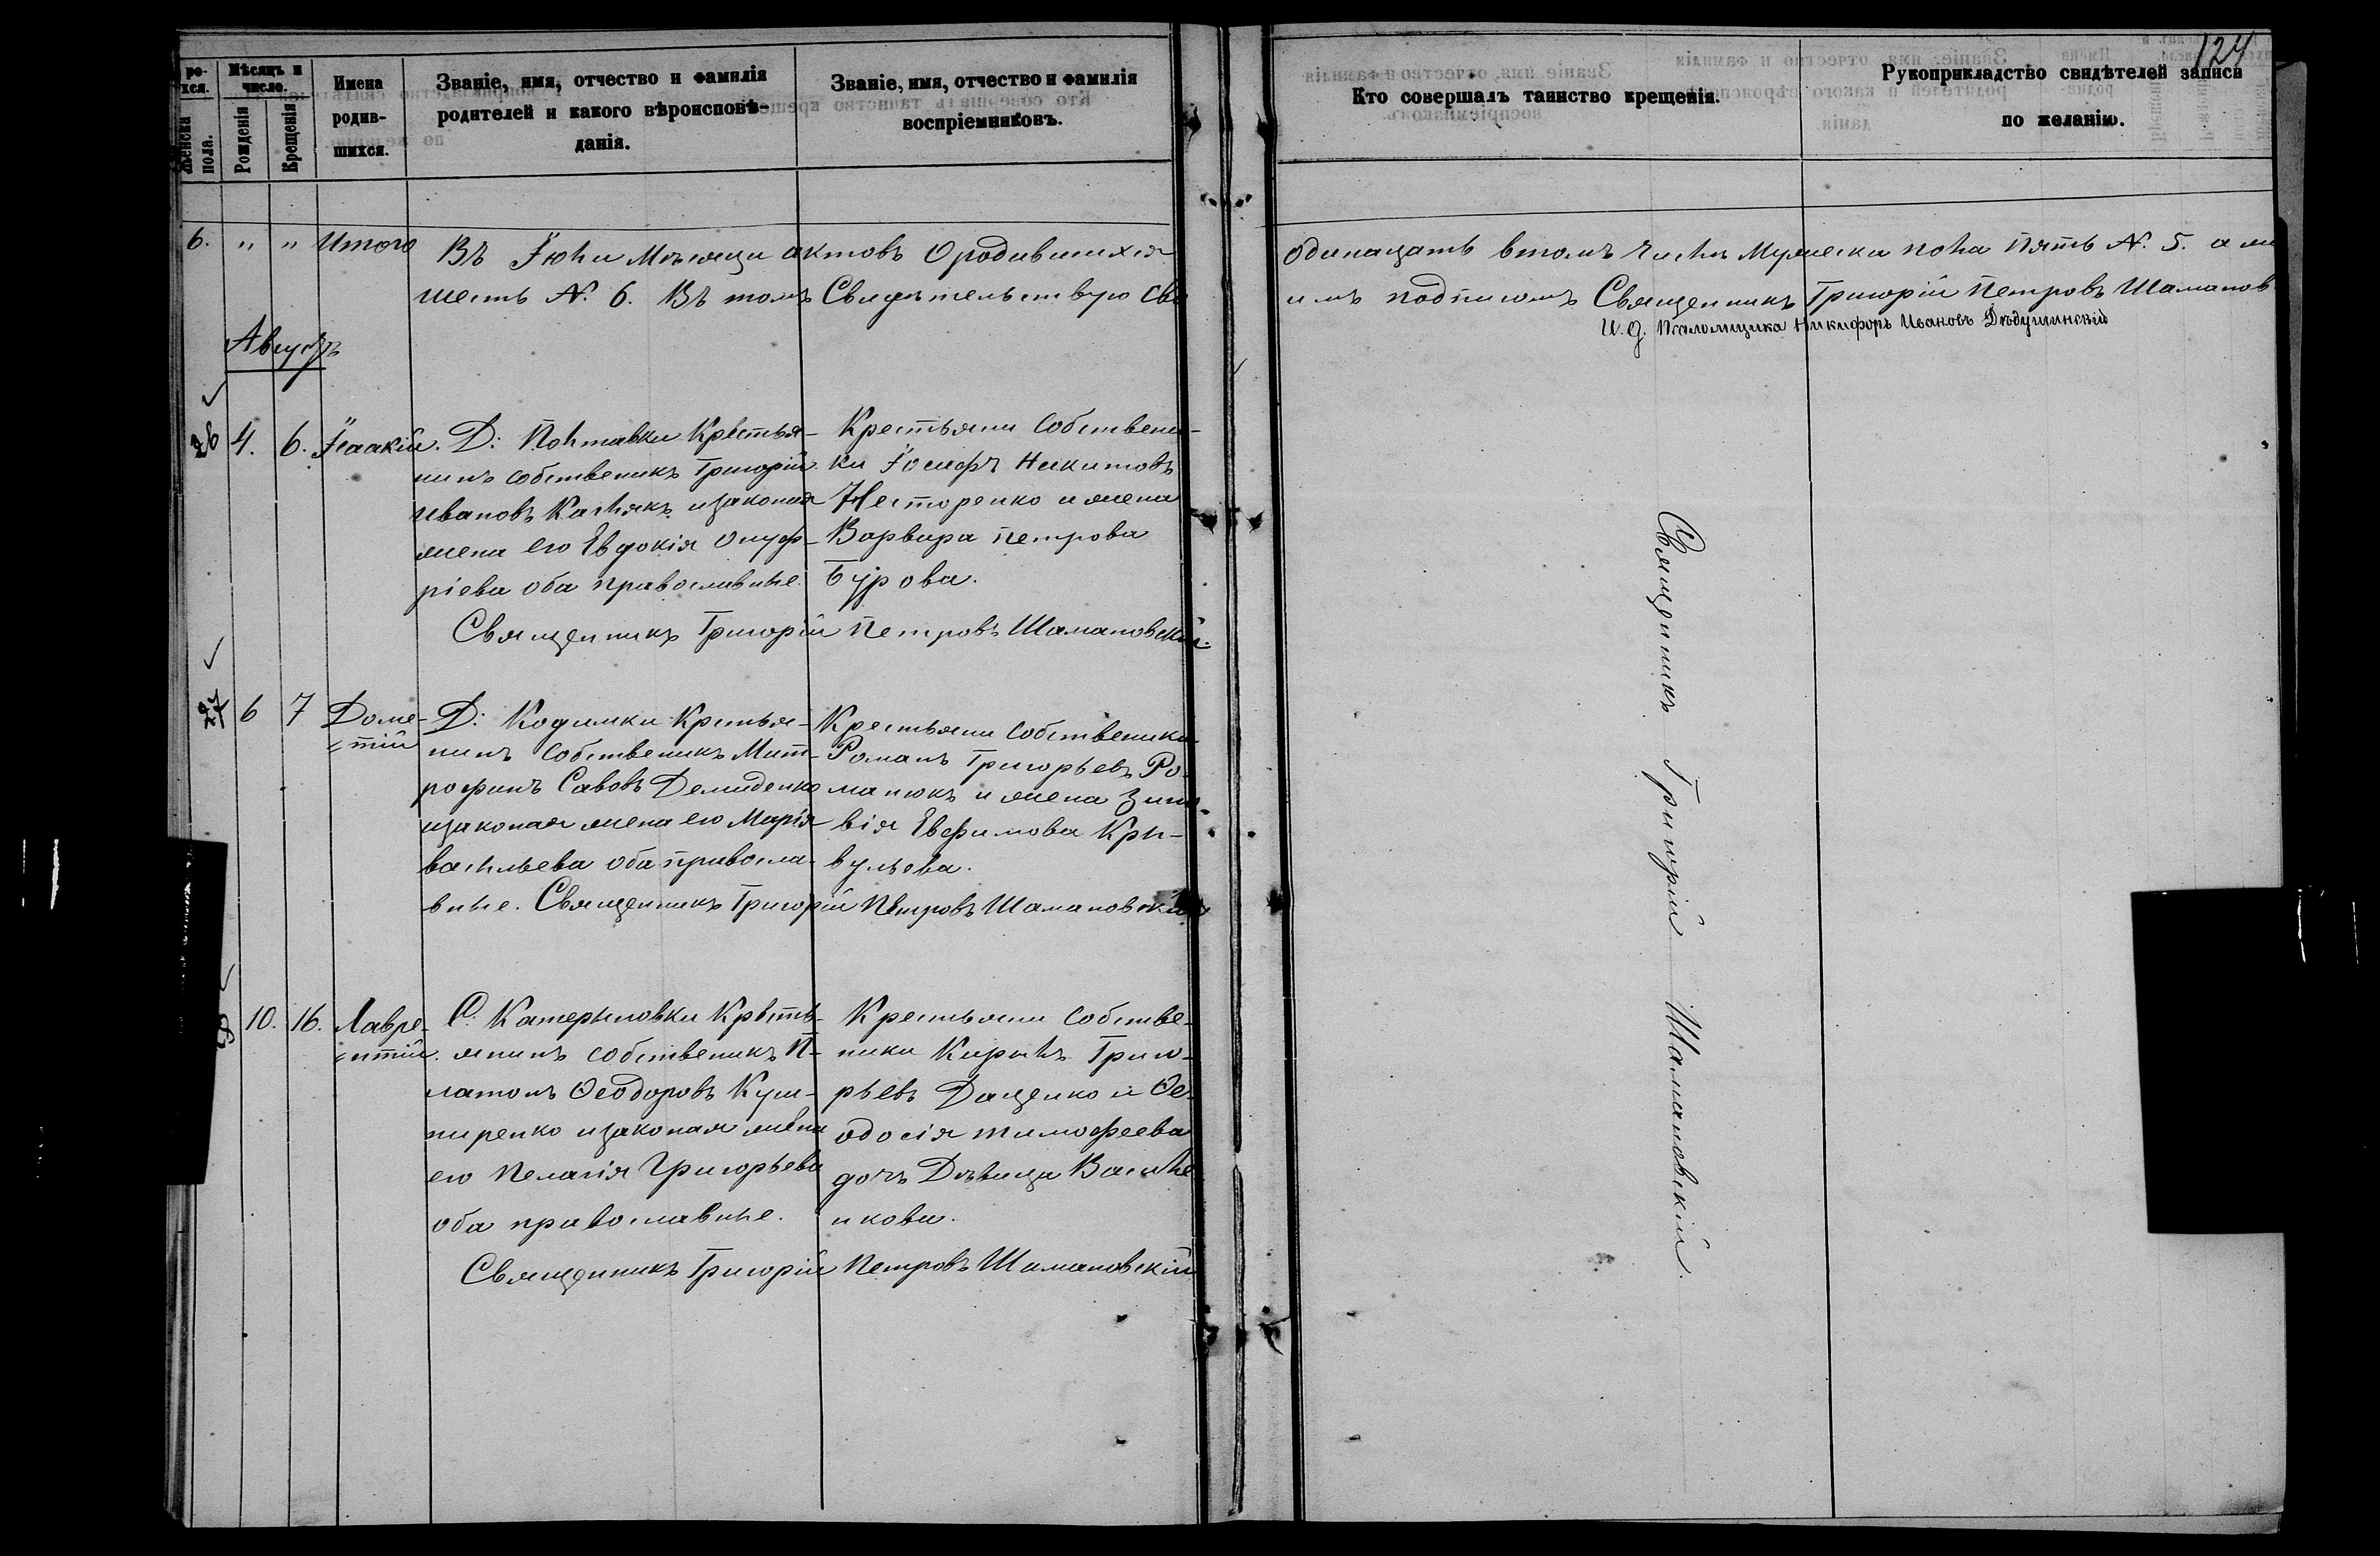 124
ро-
хся.
Мѣсяцъ и
число.
Имена
родив-
шихся.
Званіе, имя, отчество и фамилія
родителей и какого вѣроисповѣ-
данія.
Званіе, имя, отчество и фамилія
воспріемниковъ.
Кто совершалъ таинство крещенія.
Рукоприкладство свидѣтелей записи
по желанію.
Женска
пола.
Рожденія
Крещенія
6. " " Итого Въ Іюли Мѣсяци актовъ О родившихся одинацать втомъ числѣ Мужеска пола Пять №. 5. а же
шесть №. 6. Въ томъ Свидѣтельствую Сво имъ подписомъ Священникъ Григорій Петровъ Шаманов
И. д. Псаломщика Никифоръ Ивановъ Дѣдушинскій
Августъ
26 4. 6. Ісаакій. Д: Полтавки Крестья-
нинъ собственикъ Григорій
Ивановъ Каслякъ изаконая
жена его Евдокія Онуф-
ріева оба православные.
Крестьяни Собствени-
ки Іосифъ Никитовъ
Несторенко и жена
Варвара Петрова
Бурова.
Священникъ Григорій Петровъ Шамановскій.
27 6 7 Доме-
тій
Д: Кодимки Крестья-
нинъ Собственикъ Мит-
рофанъ Савовъ Демиденко
изаконая жена его Марія
васильева оба правосла-
вные. Священникъ Григорій Петровъ Шамановскій
Крестьяни Собственики
Романъ Григорьевъ Ро-
манюкъ и жена Зино-
вія Евфимова Кри-
вульева.
10. 16. Лавре-
нтій.
С: Катериновки Кресть-
янинъ собственикъ П-
латонъ Ѳеодоровъ Куш-
ниренко изаконая жена
его Пелагія Григорьева
оба православные.
Крестьяни Собстве-
ники Кирилъ Григо-
рьевъ Даценко и Ѳе-
одосія тимофеева
дочъ Дѣвица Василе
нкова.
Священникъ Григорій Петровъ Шамановскій
Священникъ Григорій Шамановскій.